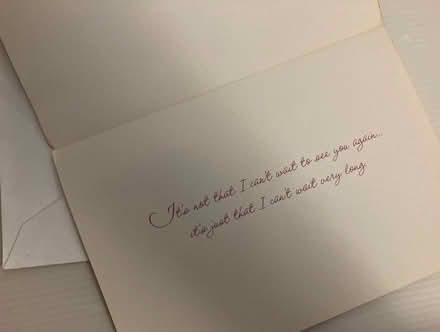 It's not that I can't wait to see you again...
it's just that I can't wait very long.